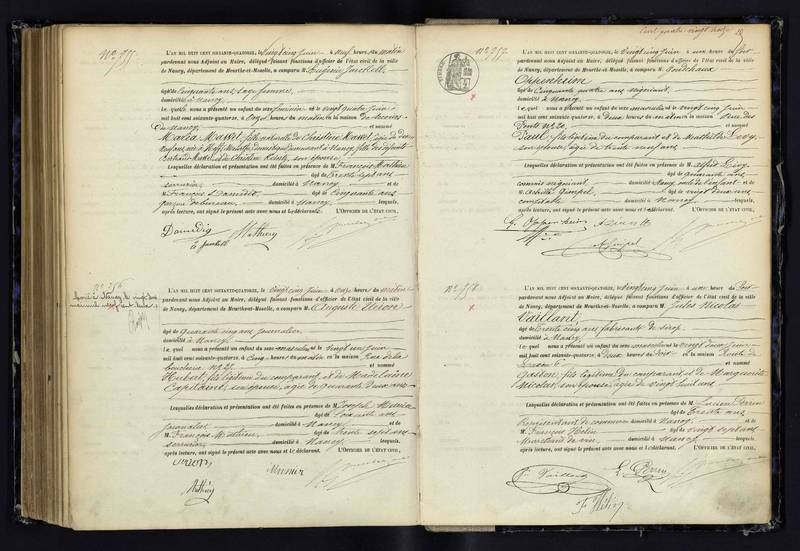 N° 755
L'AN MIL HUIT CENT SOIXANTE-QUATORZE, le vingt cinq Juin à neuf heures du matin
pardevant nous Adjoint au Maire, délégué faisant fonctions d'officier de l'état civil de la ville
de Nancy, département de Meurthe-et-Moselle, a comparu M. Eugénie
âgé de Cinquante ans sage femme,
domicilié à Nancy
le quel nous a présenté un enfant du sexe féminin né le vingt quatre Juin à
mil huit cent soixante-quatorze, à Onze heures du matin en la maison
de Nancy et nommé
Maria Massel, fille naturelle de Christine Massel
Lesquelles déclaration et présentation ont été faites en présence de M. François Mathieu
âgé de trente sept ans
serrurier domicilié à Nancy et de
M. François Damidio âgé de Cinquante ans
garçon de bureau domicilié à Nancy lesquels,
après lecture, ont signé le présent acte avec nous et le déclarant. L'OFFICIER DE L'ÉTAT CIVIL,
Mathieu
N° 756
L'AN MIL HUIT CENT SOIXANTE-QUATORZE, le vingt cinq Juin à onze heures du matin
pardevant nous Adjoint au Maire, délégué faisant fonctions d'officier de l'état civil de la ville
de Nancy, département de Meurthe-et-Moselle, a comparu M. Auguste
âgé de quarante cinq ans journalier
domicilié à Nancy
le quel nous a présenté un enfant du sexe masculin né le vingt un Juin
mil huit cent soixante-quatorze, à Cinq heures du matin en la maison Rue de la
N° 21 et nommé
Hubert, fils légitime du comparant et de Madeleine
Capitaine, son épouse, âgée de quarante deux ans
Lesquelles déclaration et présentation ont été faites en présence de M. Joseph Munier
âgé de soixante ans
journalier domicilié à Nancy et de
M. François Mathieu âgé de trente sept ans
serrurier domicilié à Nancy lesquels,
après lecture, ont signé le présent acte avec nous et le déclarant. L'OFFICIER DE L'ÉTAT CIVIL,
Munier
Mathieu
Cent quatre vingt
N° 757
L'AN MIL HUIT CENT SOIXANTE-QUATORZE, le vingt cinq Juin à une heure du soir
pardevant nous Adjoint au Maire, délégué faisant fonctions d'officier de l'état civil de la ville
de Nancy, département de Meurthe-et-Moselle, a comparu M. Goudchaux
Oppenheim
âgé de Cinquante quatre ans négociant
domicilié à Nancy
le quel nous a présenté un enfant du sexe masculin né le vingt cinq Juin
mil huit cent soixante-quatorze, à deux heures du matin en la maison Rue des
Ponts N° 20 et nommé
Paul, fils légitime du comparant et de Mathilde Lévy
son épouse, âgée de trente neuf ans
Lesquelles déclaration et présentation ont été faites en présence de M. Alfred Lévy
âgé de quarante ans
commis négociant domicilié à Nancy, oncle de l'enfant et de
M. Gimpel âgé de vingt deux ans
comptable domicilié à Nancy lesquels,
après lecture, ont signé le présent acte avec nous et le déclarant. L'OFFICIER DE L'ÉTAT CIVIL,
G. Oppenheim
A. Gimpel
N° 758
L'AN MIL HUIT CENT SOIXANTE-QUATORZE, le vingt cinq Juin à une heure du soir
pardevant nous Adjoint au Maire, délégué faisant fonctions d'officier de l'état civil de la ville
de Nancy, département de Meurthe-et-Moselle, a comparu M. Jules Nicolas
Vaillant,
âgé de trente cinq ans fabricant de sirop
domicilié à Nancy
le quel nous a présenté un enfant du sexe masculin né le vingt deux Juin
mil huit cent soixante-quatorze, à deux heures du soir en la maison Route de
et nommé
Gaston, fils légitime du comparant et de Marguerite
Nicolas, son épouse, âgée de vingt huit ans
Lesquelles déclaration et présentation ont été faites en présence de M. Lucien Perrin
âgé de trente ans
Représentant de commerce domicilié à Nancy et de
M. François Hélin âgé de vingt sept ans
Marchand de vin domicilié à Nancy lesquels,
après lecture, ont signé le présent acte avec nous et le déclarant. L'OFFICIER DE L'ÉTAT CIVIL,
Vaillant
L. Perrin
F. Hélin